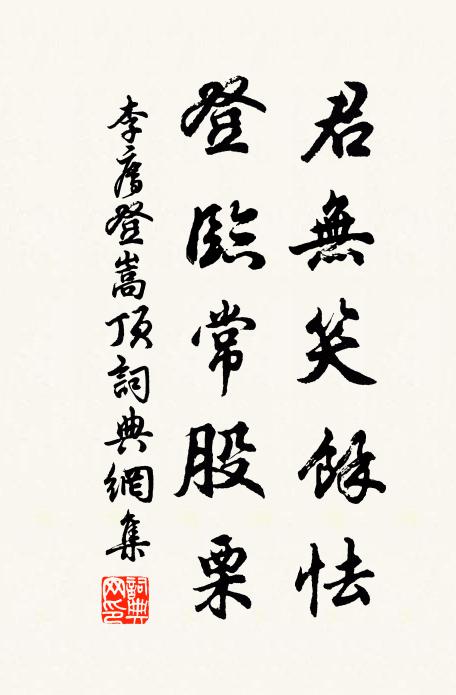 君無笑餘怯
登臨常股栗
李廌登嵩頂詞典網集
詞典網印